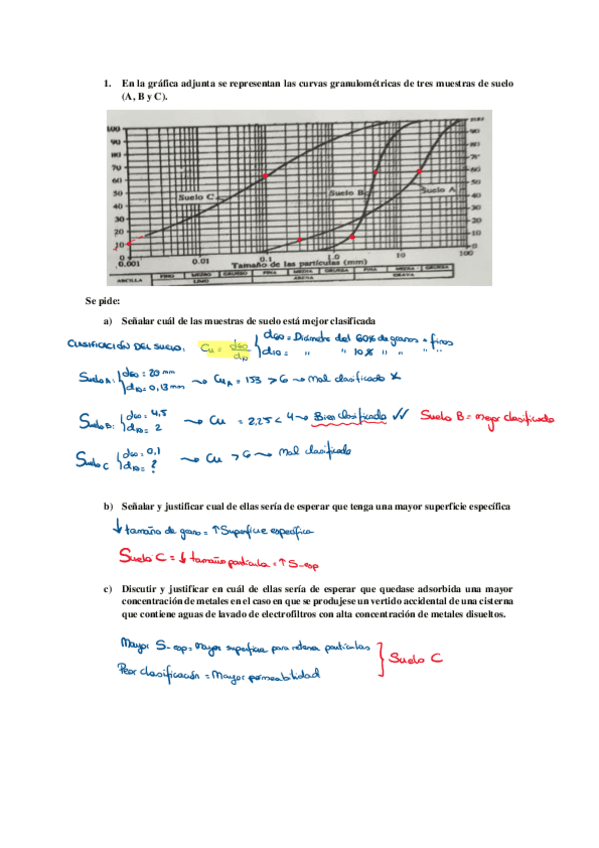 1. En la gráfica adjunta se representan las curvas granulométricas de tres muestras de suelo
(A, B y C).
100
90
80
70
60
50
40
30
20
10
0
90
80
70
60
50
40
30
20
10
0
Suelo C
Suelo B
Suelo A
0.001 0.01 0.1 1.0 10 100
Tamaño de las partículas (mm)
ARCILLA FINO MEDIO GRUESO FINA MEDIA GRUESA FINA MEDIA GRUESA
LIMO ARENA GRAVA
Se pide:
a) Señalar cuál de las muestras de suelo está mejor clasificada
CLASIFICACIÓN DEL SUELO: Cu = d60/d10 { d60 = Diámetro del 60% de granos + finos
d10 = " " 10% " " " "
Suelo A: { d60 = 20 mm
d10 = 0,13 mm → CuA = 153 > 6 → Mal clasificado X
Suelo B: { d60 = 4,5
d10 = 2 → Cu = 2,25 < 4 → Bien clasificado ✓✓ Suelo B = mejor clasificado
Suelo C { d60 = 0,1
d10 = ? → Cu > 6 → Mal clasificado
b) Señalar y justificar cual de ellas sería de esperar que tenga una mayor superficie específica
↓ tamaño de grano = ↑ Superficie específica
Suelo C = ↓ tamaño partícula = ↑ S_esp
c) Discutir y justificar en cuál de ellas sería de esperar que quedase adsorbida una mayor
concentración de metales en el caso en que se produjese un vertido accidental de una cisterna
que contiene aguas de lavado de electrofiltros con alta concentración de metales disueltos.
Mayor S_esp = mayor superficie para retener partículas
Peor clasificación = Mayor permeabilidad } Suelo C